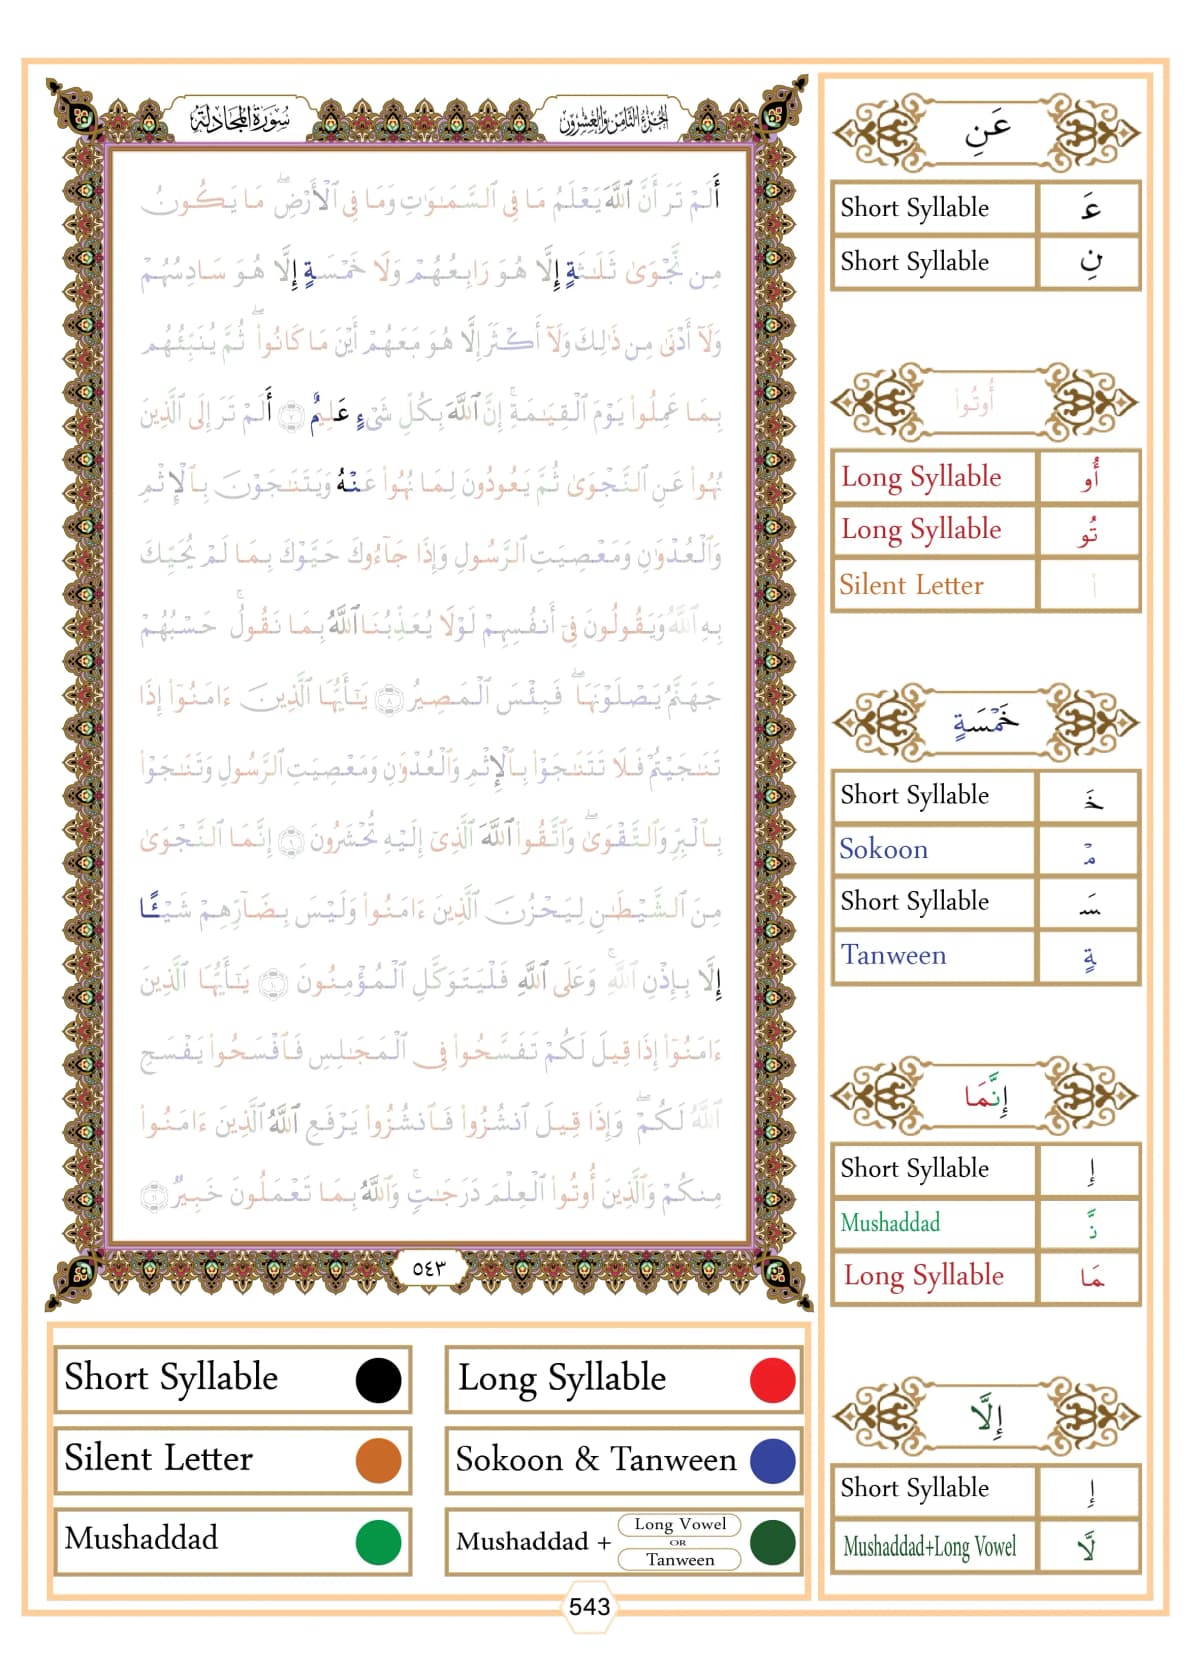 سورة المجادلة
الجزء الثامن والعشرون
أَلَمْ تَرَ أَنَّ ٱللَّهَ يَعْلَمُ مَا فِى ٱلسَّمَـٰوَٰتِ وَمَا فِى ٱلْأَرْضِ ۖ مَا يَكُونُ
مِن نَّجْوَىٰ ثَلَـٰثَةٍ إِلَّا هُوَ رَابِعُهُمْ وَلَا خَمْسَةٍ إِلَّا هُوَ سَادِسُهُمْ
وَلَآ أَدْنَىٰ مِن ذَٰلِكَ وَلَآ أَكْثَرَ إِلَّا هُوَ مَعَهُمْ أَيْنَ مَا كَانُوا۟ ۖ ثُمَّ يُنَبِّئُهُم
بِمَا عَمِلُوا۟ يَوْمَ ٱلْقِيَـٰمَةِ ۚ إِنَّ ٱللَّهَ بِكُلِّ شَىْءٍ عَلِيمٌ ٧ أَلَمْ تَرَ إِلَى ٱلَّذِينَ
نُهُوا۟ عَنِ ٱلنَّجْوَىٰ ثُمَّ يَعُودُونَ لِمَا نُهُوا۟ عَنْهُ وَيَتَنَـٰجَوْنَ بِٱلْإِثْمِ
وَٱلْعُدْوَٰنِ وَمَعْصِيَتِ ٱلرَّسُولِ وَإِذَا جَآءُوكَ حَيَّوْكَ بِمَا لَمْ يُحَيِّكَ
بِهِ ٱللَّهُ وَيَقُولُونَ فِىٓ أَنفُسِهِمْ لَوْلَا يُعَذِّبُنَا ٱللَّهُ بِمَا نَقُولُ ۚ حَسْبُهُمْ
جَهَنَّمُ يَصْلَوْنَهَا ۖ فَبِئْسَ ٱلْمَصِيرُ ٨ يَـٰٓأَيُّهَا ٱلَّذِينَ ءَامَنُوٓا۟ إِذَا
تَنَـٰجَيْتُمْ فَلَا تَتَنَـٰجَوْا۟ بِٱلْإِثْمِ وَٱلْعُدْوَٰنِ وَمَعْصِيَتِ ٱلرَّسُولِ وَتَنَـٰجَوْا۟
بِٱلْبِرِّ وَٱلتَّقْوَىٰ ۖ وَٱتَّقُوا۟ ٱللَّهَ ٱلَّذِىٓ إِلَيْهِ تُحْشَرُونَ ٩ إِنَّمَا ٱلنَّجْوَىٰ
مِنَ ٱلشَّيْطَـٰنِ لِيَحْزُنَ ٱلَّذِينَ ءَامَنُوا۟ وَلَيْسَ بِضَآرِّهِمْ شَيْـًٔا
إِلَّا بِإِذْنِ ٱللَّهِ ۚ وَعَلَى ٱللَّهِ فَلْيَتَوَكَّلِ ٱلْمُؤْمِنُونَ ١٠ يَـٰٓأَيُّهَا ٱلَّذِينَ
ءَامَنُوٓا۟ إِذَا قِيلَ لَكُمْ تَفَسَّحُوا۟ فِى ٱلْمَجَـٰلِسِ فَٱفْسَحُوا۟ يَفْسَحِ
ٱللَّهُ لَكُمْ ۖ وَإِذَا قِيلَ ٱنشُزُوا۟ فَٱنشُزُوا۟ يَرْفَعِ ٱللَّهُ ٱلَّذِينَ ءَامَنُوا۟
مِنكُمْ وَٱلَّذِينَ أُوتُوا۟ ٱلْعِلْمَ دَرَجَـٰتٍ ۚ وَٱللَّهُ بِمَا تَعْمَلُونَ خَبِيرٌ ١١
٥٤٣
عَنِ
Short Syllable عَ
Short Syllable نِ
أُوتُوا۟
Long Syllable أُو
Long Syllable تُو
Silent Letter ا۟
خَمْسَةٍ
Short Syllable خَ
Sokoon مْ
Short Syllable سَ
Tanween ةٍ
إِنَّمَا
Short Syllable إِ
Mushaddad نَّ
Long Syllable مَا
إِلَّا
Short Syllable إِ
Mushaddad+Long Vowel لَّا
Short Syllable
Long Syllable
Silent Letter
Sokoon & Tanween
Mushaddad
Mushaddad + Long Vowel
OR
Tanween
543